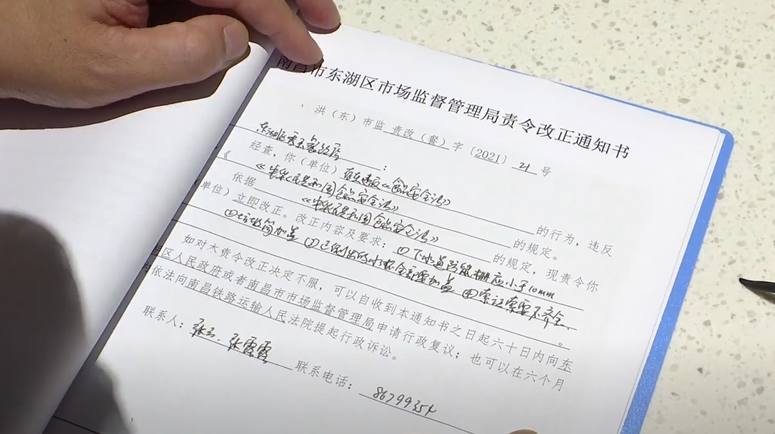 南昌市东湖区市场监督管理局责令改正通知书
洪（东）市监 责改（餐）字〔2021〕21 号
：
经查，你（单位）《食品安全法》的行为，违反
《《中华人民共和国食品安全法》的规定。
依据《中华人民共和国食品安全法》的规定，现责令你
（单位）立即改正。改正内容及要求：①下水道防鼠栅应小于10mm
①垃圾筒加盖 ④索证索票不齐全。
如对本责令改正决定不服，可以自收到本通知书之日起六十日内向东
区人民政府或者南昌市市场监督管理局申请行政复议；也可以在六个月
依法向南昌铁路运输人民法院提起行政诉讼。
联系人：张霞霞 联系电话：86799354